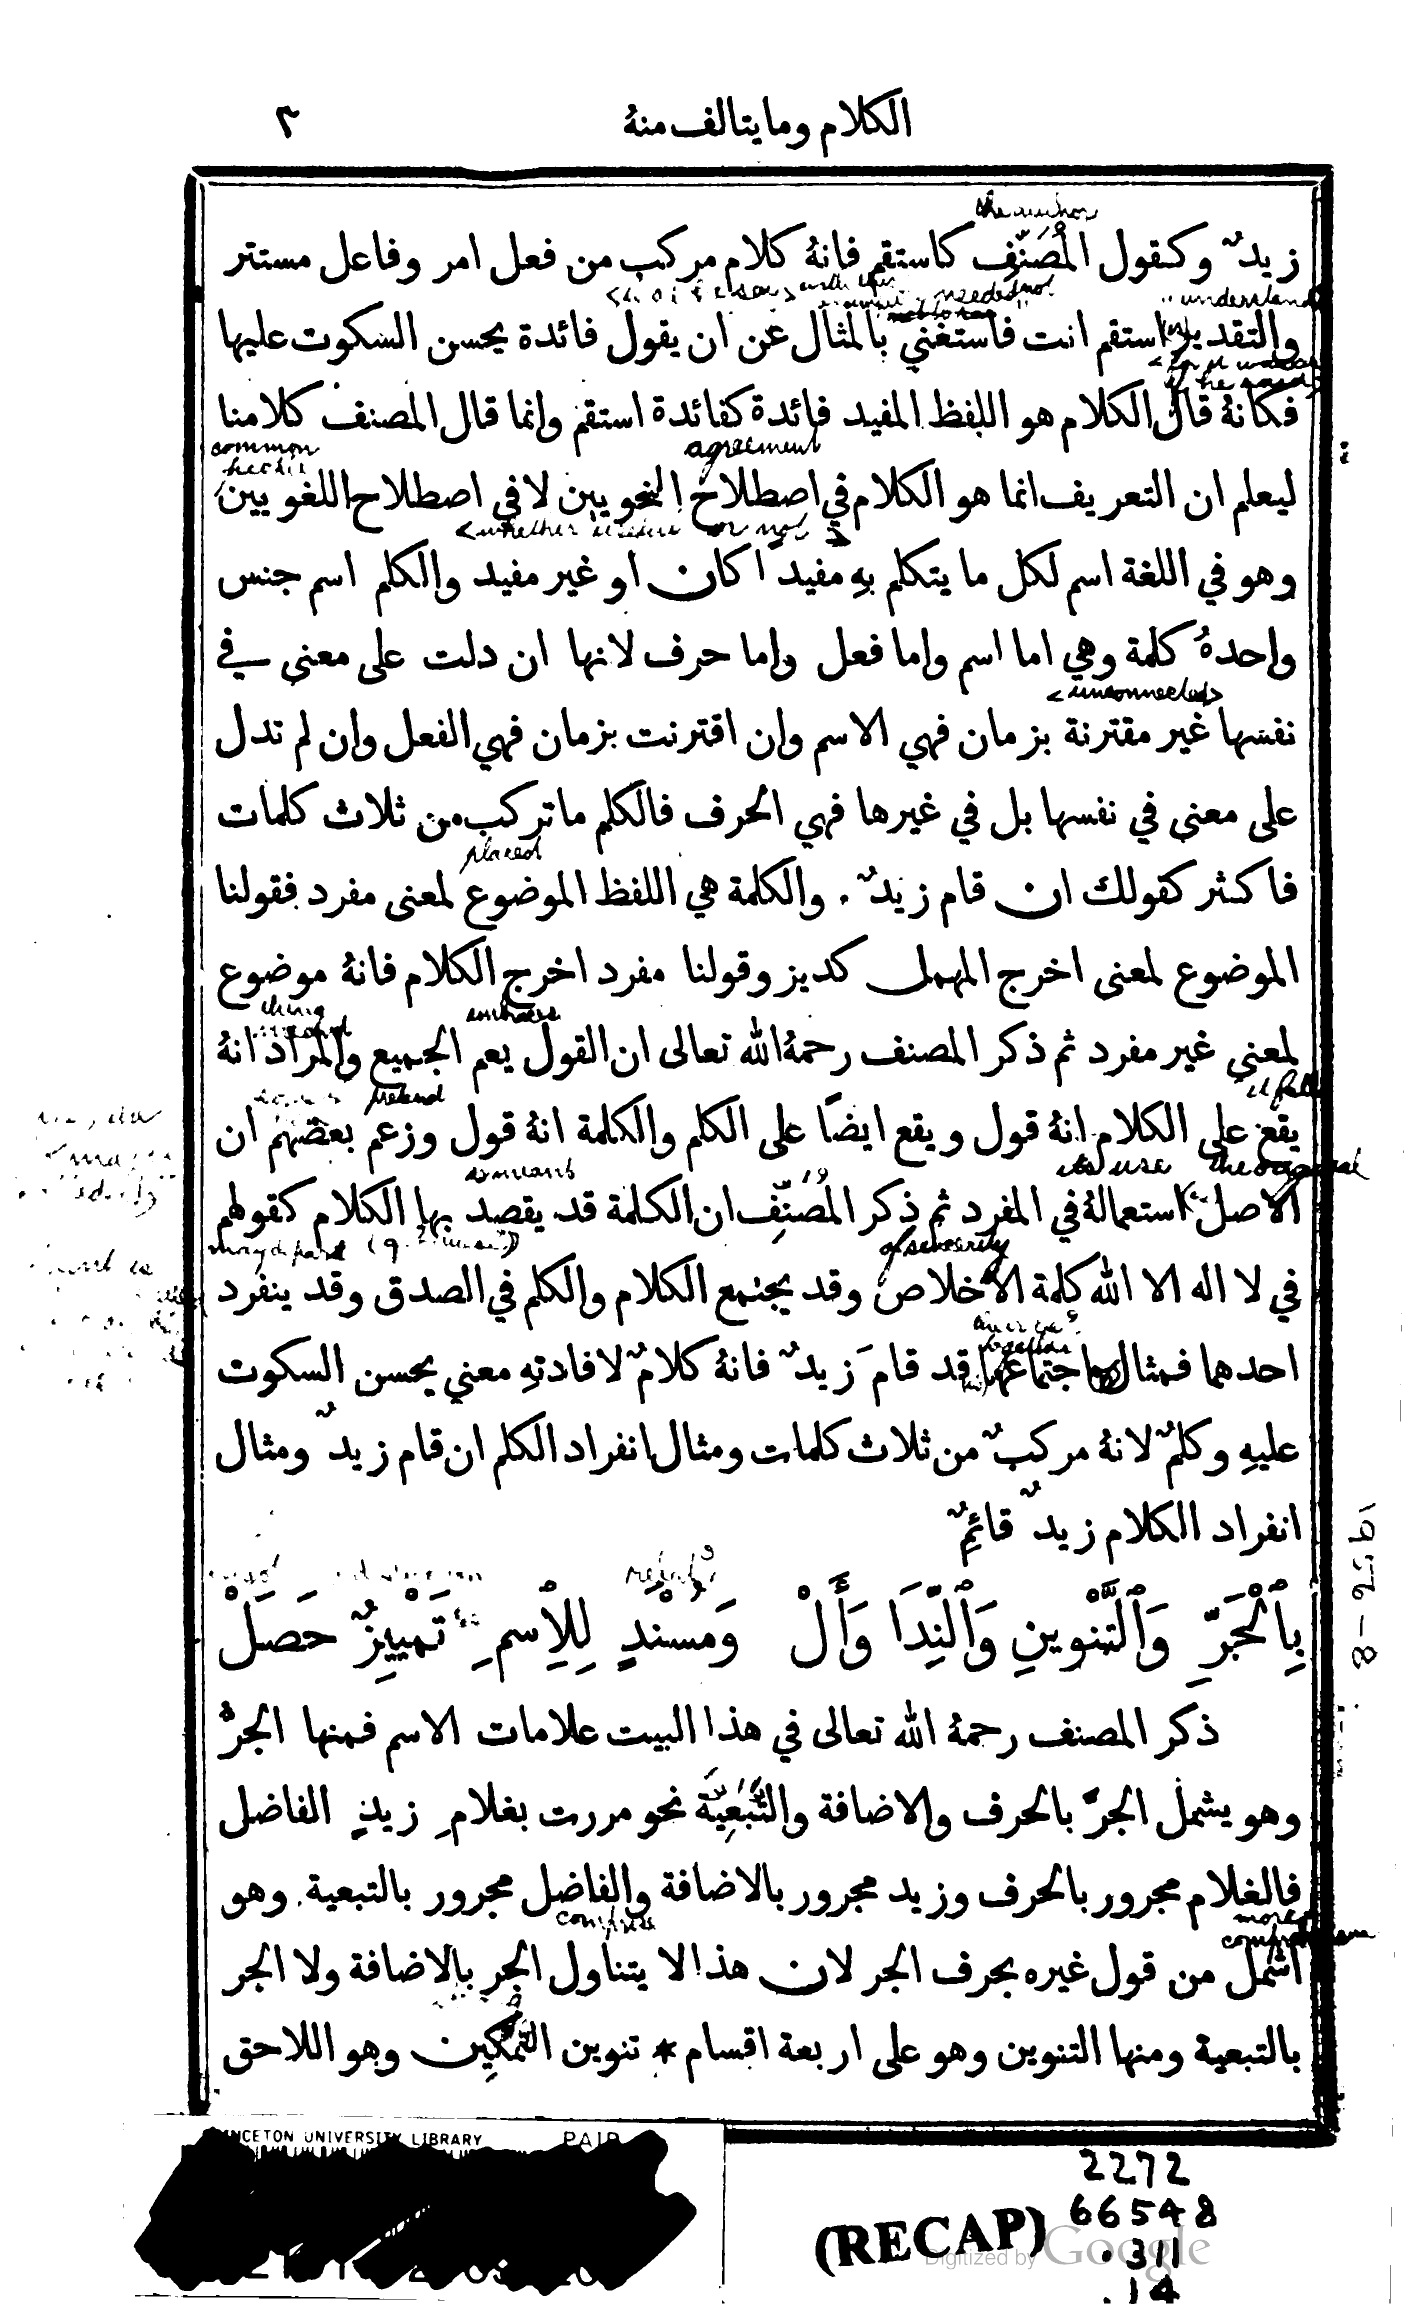 الكلام وما يتالف منهُ
٣
the author
زيدٌ وكقول المُصَنِّف كاستقم فانهُ كلام مركب من فعل امر وفاعل مستتر
needed not
"understand
والتقدير استقم انت فاستغني بالمثال عن ان يقول فائدة يحسن السكوت عليها
فكانهُ قال الكلام هو اللفظ المفيد فائدة كفائدة استقم وانما قال المصنف كلامنا
common
agreement
ليعلم ان التعريف انما هو الكلام في اصطلاح النحويين لا في اصطلاح اللغويين
<whether or not
وهو في اللغة اسم لكل ما يتكلم بهِ مفيدًا كان او غير مفيد والكلم اسم جنس
واحدهُ كلمة وهي اما اسم واما فعل واما حرف لانها ان دلت على معنى في
<unconnected>
نفسها غير مقترنة بزمان فهي الاسم وان اقترنت بزمان فهي الفعل وان لم تدل
على معنى في نفسها بل في غيرها فهي الحرف فالكلم ما تركب من ثلاث كلمات
placed
فاكثر كقولك ان قام زيدٌ . والكلمة هي اللفظ الموضوع لمعنى مفرد فقولنا
الموضوع لمعنى اخرج المهمل كديز وقولنا مفرد اخرج الكلام فانهُ موضوع
thing
embrace
لمعنى غير مفرد ثم ذكر المصنف رحمهُ الله تعالى ان القول يعم الجميع والمراد انهُ
pretend
يقع على الكلام انهُ قول ويقع ايضًا على الكلم والكلمة انهُ قول وزعم بعضهم ان
its use
الاصل استعمالهُ في المفرد ثم ذكر المُصنِّف ان الكلمة قد يقصد بها الكلام كقولهم
of sincerity
في لا اله الا الله كلمة الاخلاص وقد يجتمع الكلام والكلم في الصدق وقد ينفرد
together
احدهما فمثال اجتماعهما قد قامَ زيدٌ فانهُ كلامٌ لافادتهِ معنى يحسن السكوت
عليهِ وكلمٌ لانهُ مركبٌ من ثلاث كلمات ومثال انفراد الكلم ان قام زيدٌ ومثال
انفراد الكلام زيدٌ قائمٌ
بِٱلْجَرِّ وَٱلتَّنْوِينِ وَٱلنِّدَا وَأَلْ وَمُسْنَدٍ لِلِٱسْمِ تَمْيِيزٌ حَصَلْ
ذكر المصنف رحمهُ الله تعالى في هذا البيت علامات الاسم فمنها الجرُّ
وهو يشمل الجرَّ بالحرف والاضافة والتَّبَعِيَّة نحو مررت بغلامِ زيدٍ الفاضل
فالغلام مجرور بالحرف وزيد مجرور بالاضافة والفاضل مجرور بالتبعية. وهو
comprise
more
اشمل من قول غيره بحرف الجر لان هذا لا يتناول الجر بالاضافة ولا الجر
بالتبعية ومنها التنوين وهو على اربعة اقسام * تنوين التَّمكِين وهو اللاحق
PRINCETON UNIVERSITY LIBRARY PAIR
2272
66548
.311
.14
(RECAP)
Digitized by Google